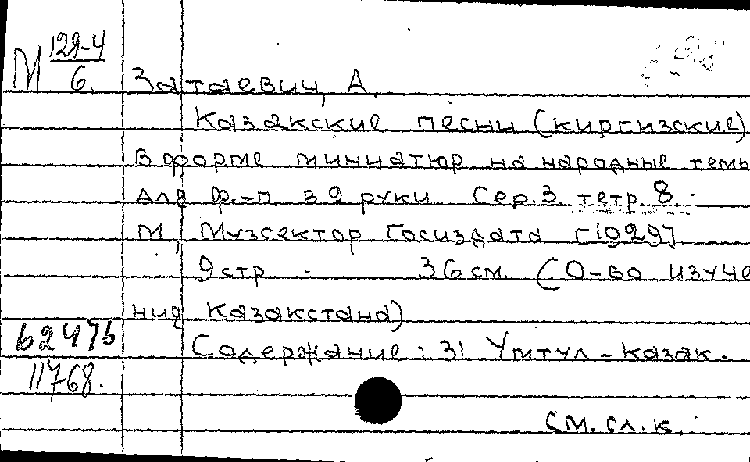 М 129-4
6.
Затаевич, А.
Казакские песни (киргизские)
в форме миниатюр на народные темы
для ф.-п. в 2 руки Сер.3. тетр. 8.
М, Музсектор Госиздата [1929]
9 стр. 36 см. (О-во изуче
ния Казакстана)
Содержание: 31
казак.
11768.
см. сл. к.